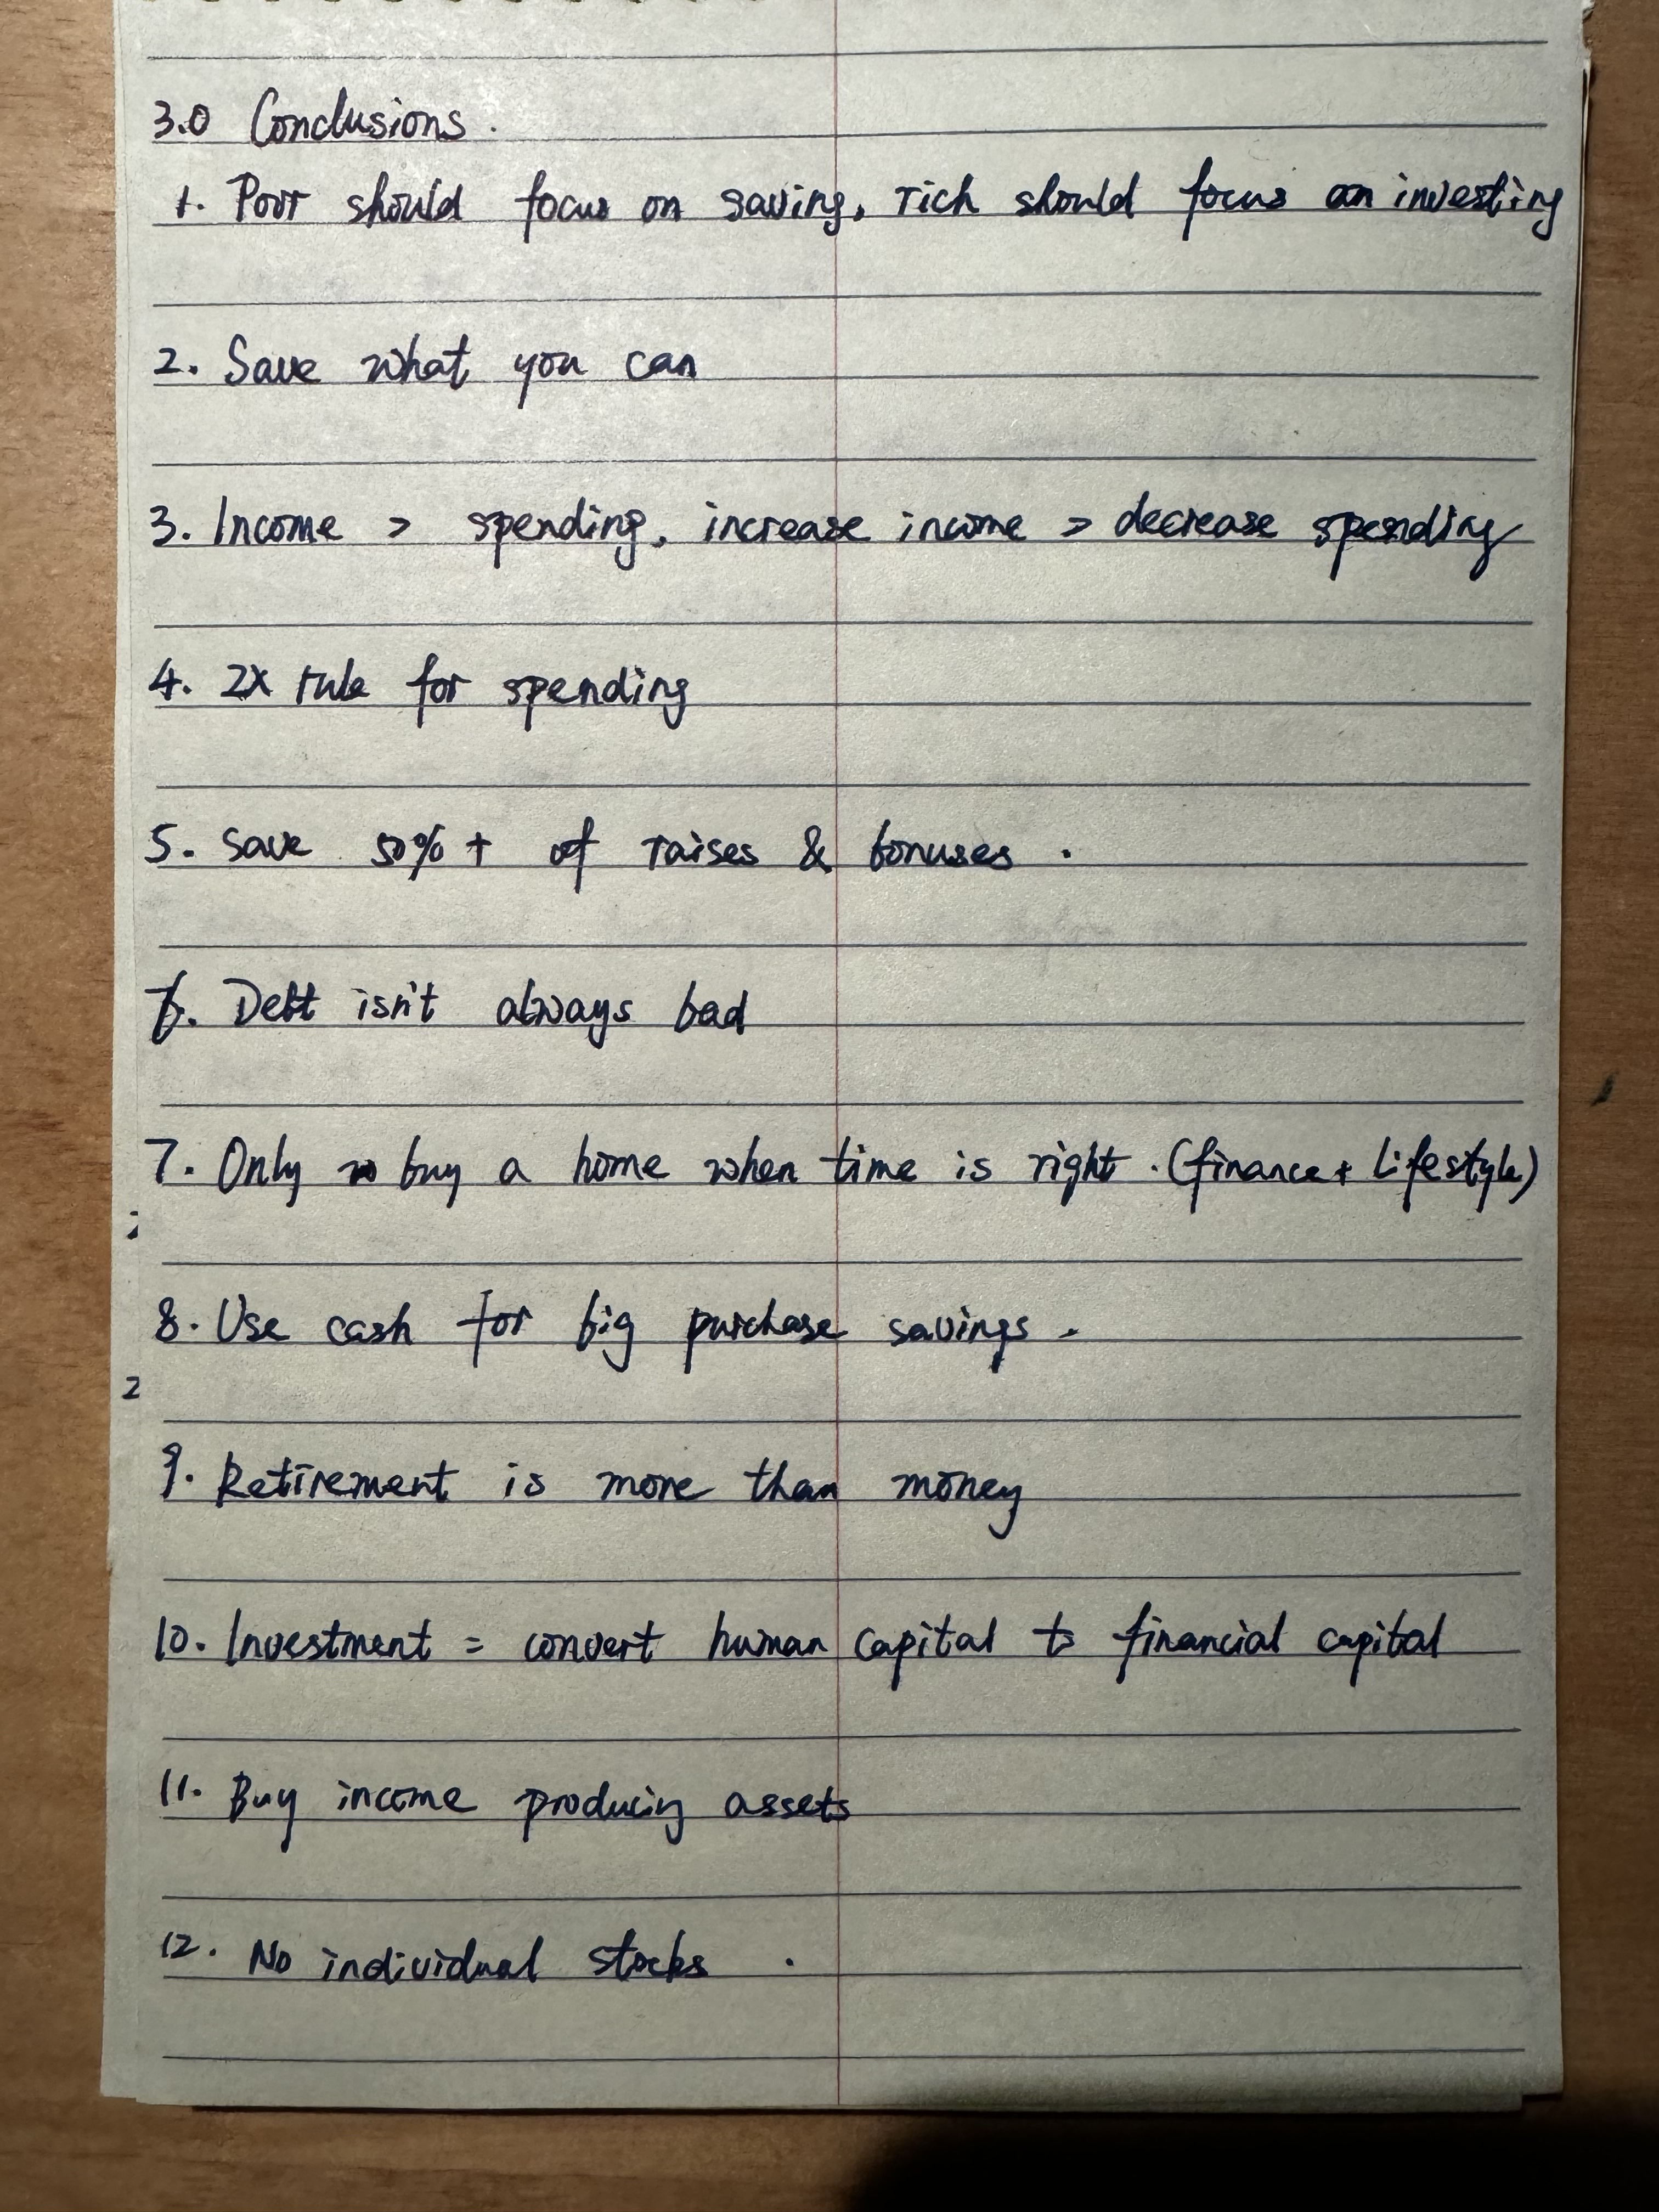 3.0 Conclusions.
1. Poor should focus on saving, rich should focus on investing
2. Save what you can
3. Income > spending, increase income > decrease spending
4. 2X rule for spending
5. Save 50% + of raises & bonuses.
6. Debt isn't always bad
7. Only buy a home when time is right. (finance + Lifestyle)
8. Use cash for big purchase savings.
2
9. Retirement is more than money
10. Investment = convert human capital to financial capital
11. Buy income producing assets
12. No individual stocks.